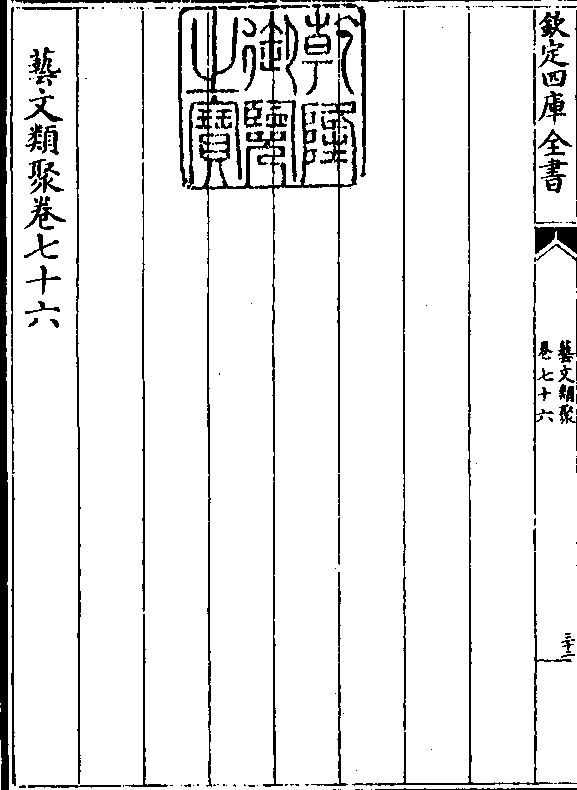 欽定四庫全書
藝文類聚
卷七十六
三十二
乾隆
御覽
之寶
藝文類聚卷七十六